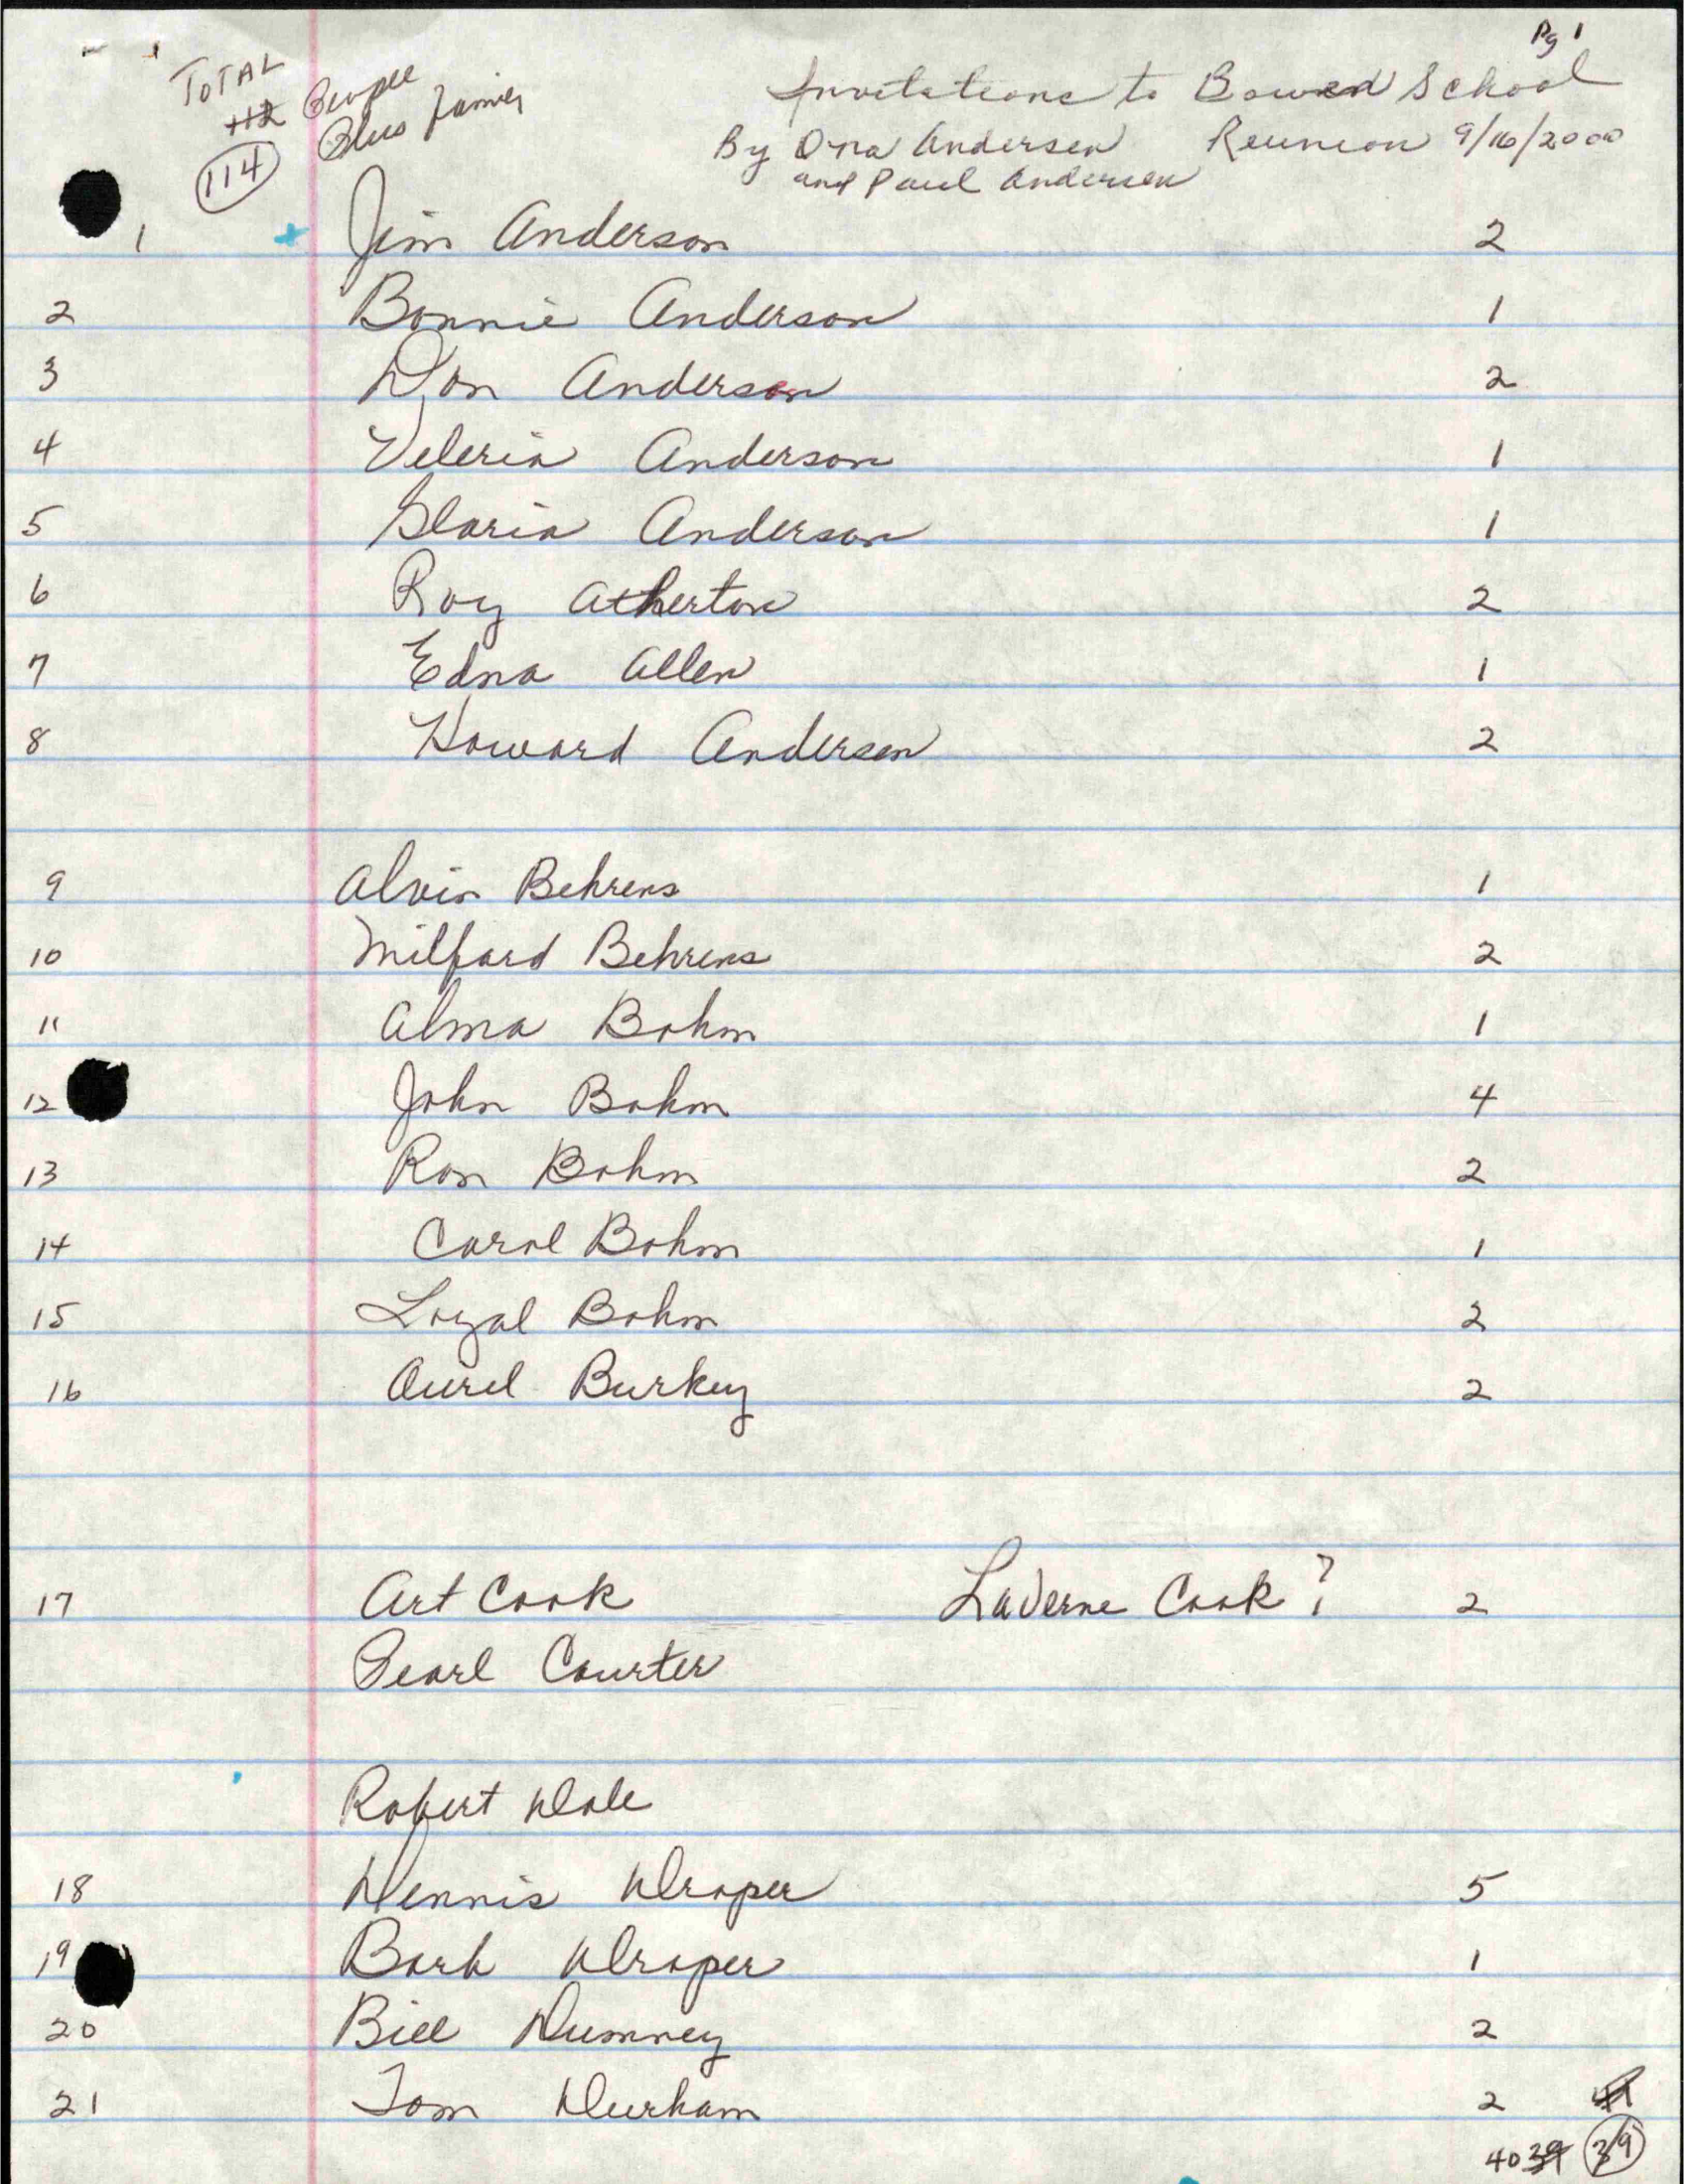 Pg 1
TOTAL
112 People
Plus Jamies
114
Invitations to Bowen School
By Ona Andersen Reunion 9/16/2000
and Paul Andersen
1 + Jim Anderson 2
2 Bonnie Anderson 1
3 Don Anderson 2
4 Veleria Anderson 1
5 Gloria Anderson 1
6 Roy Atherton 2
7 Edna Allen 1
8 Howard Andersen 2
9 Alvin Behrens 1
10 Milford Behrens 2
11 Alma Bohm 1
12 John Bohm 4
13 Ron Bohm 2
14 Carol Bohm 1
15 Loyal Bohm 2
16 Aurel Burkey 2
17 Art Cook LaVerne Cook ? 2
Pearl Courter
Robert Dale
18 Dennis Draper 5
19 Barb Draper 1
20 Bill Dumney 2
21 Tom Durham 2 41
40 39 39